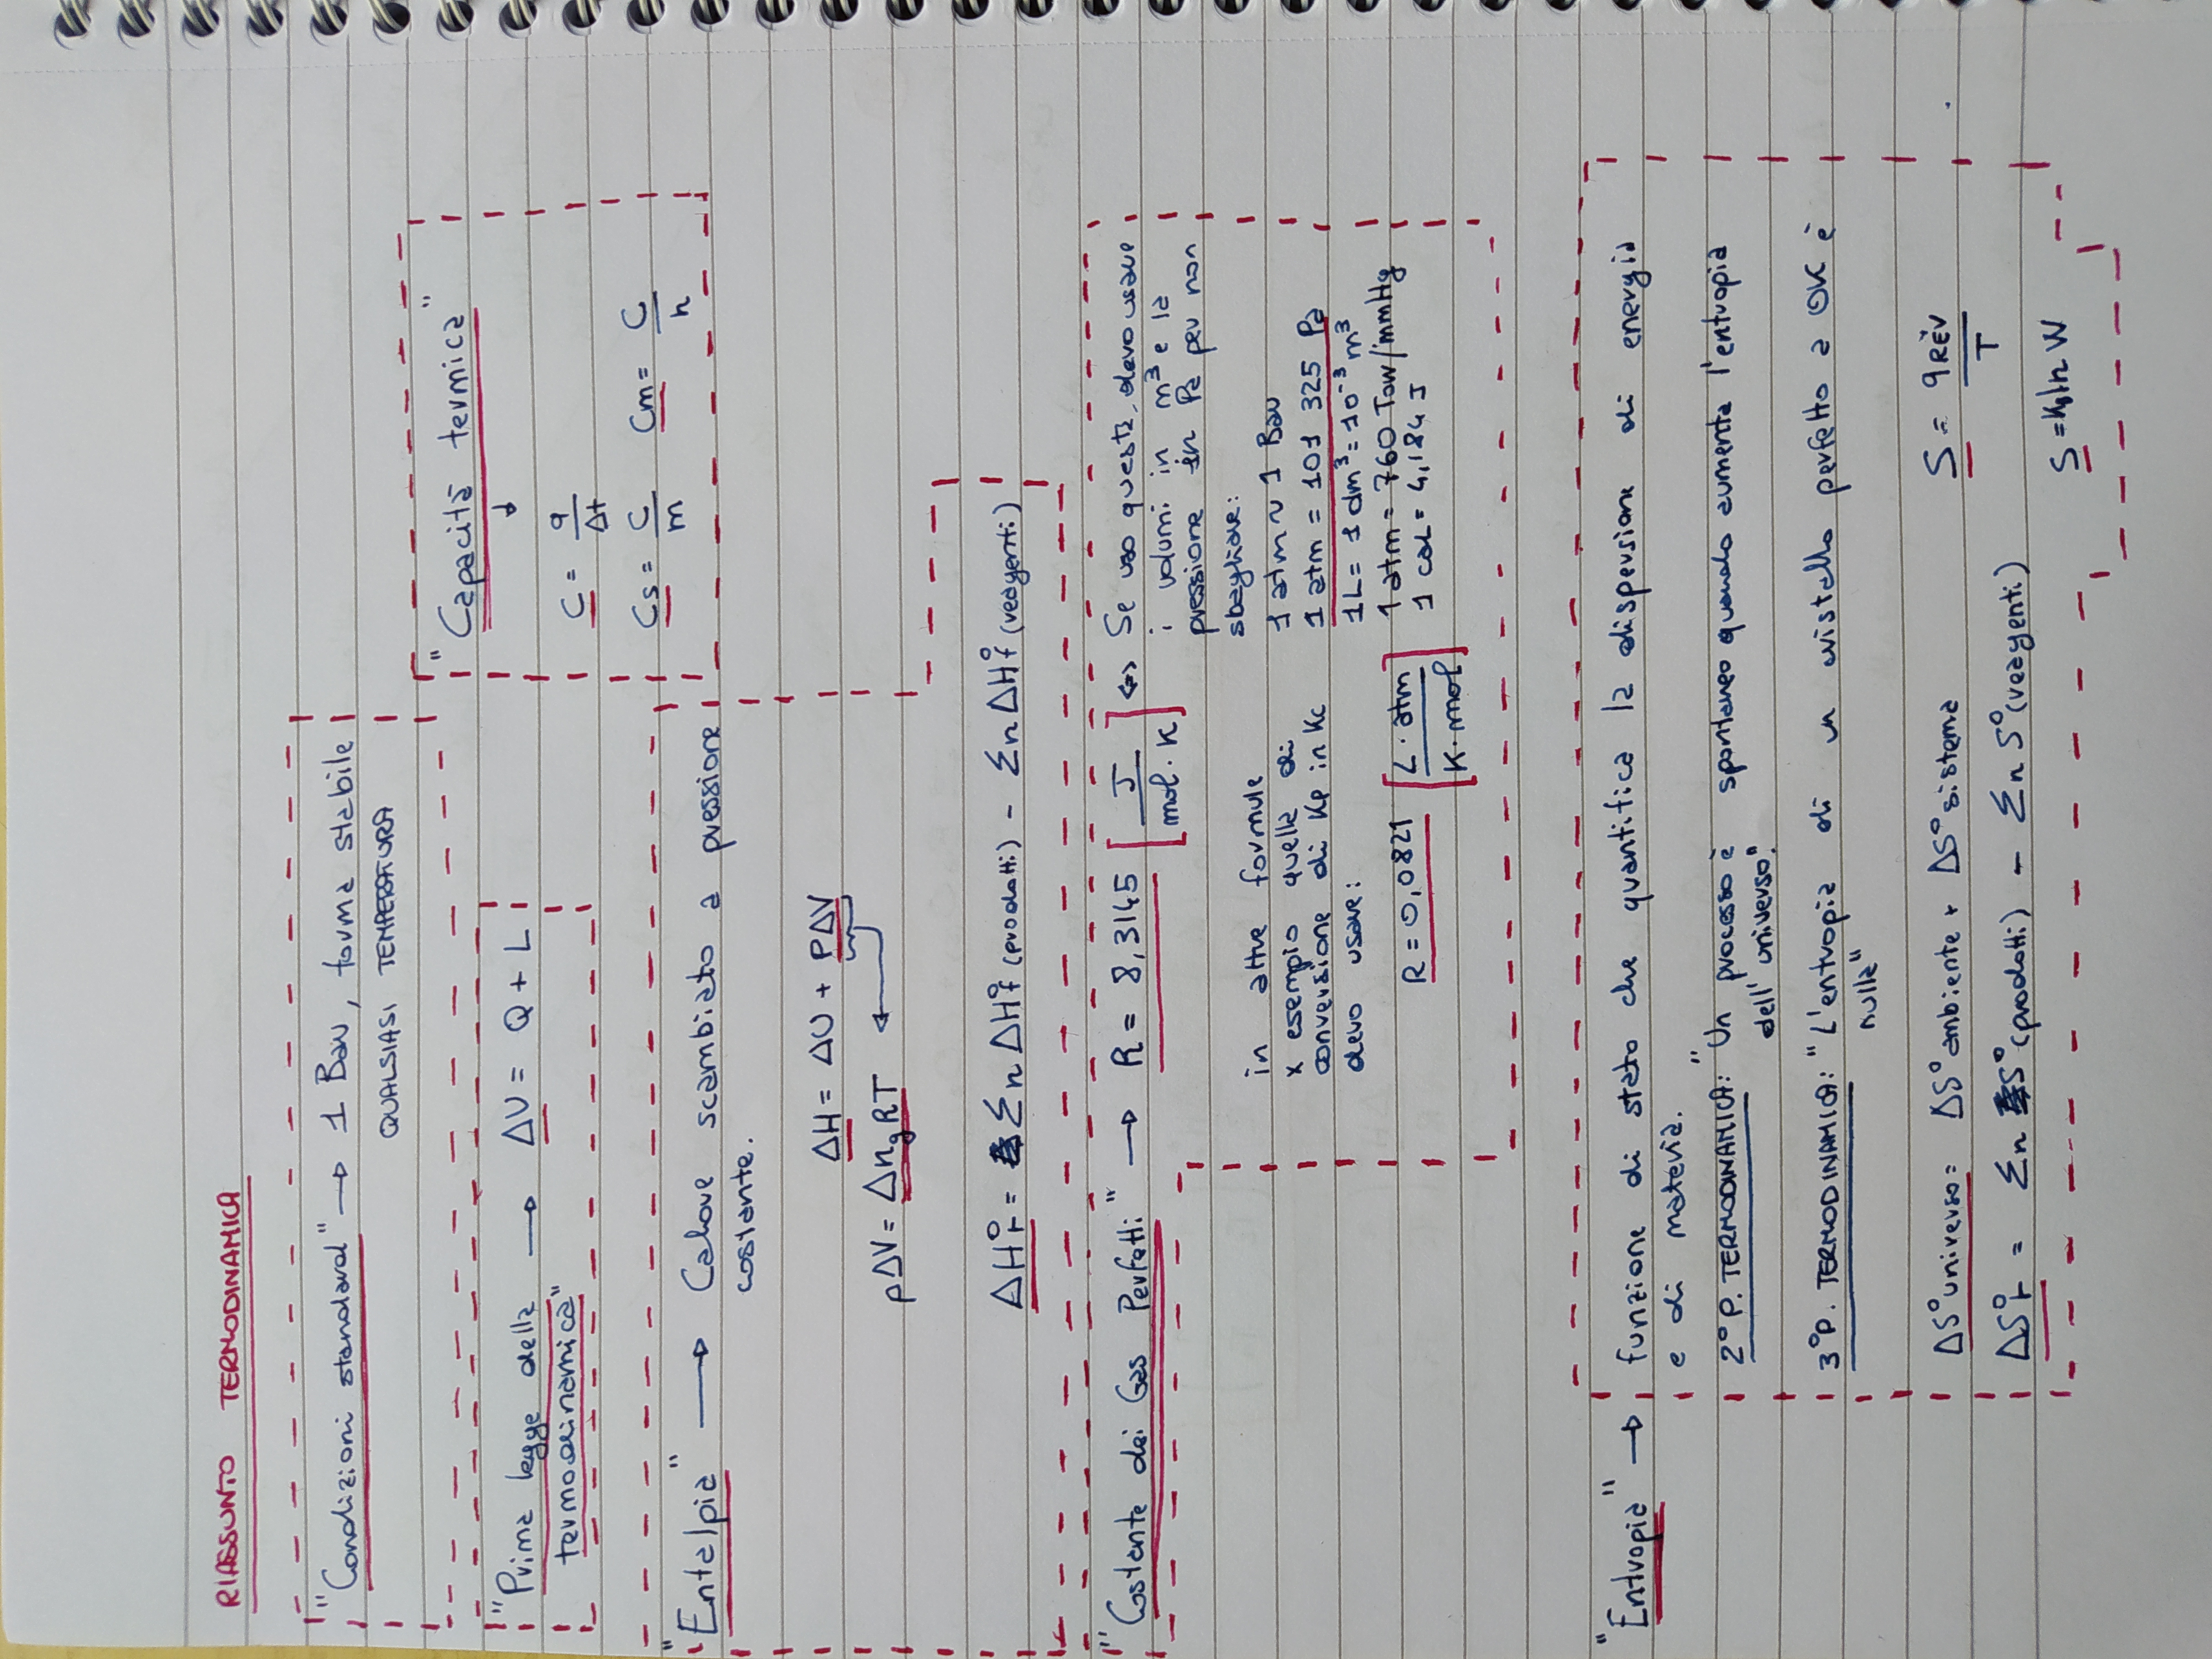 RIASSUNTO TERMODINAMICA
"Condizioni standard" → 1 Bar, forma stabile
QUALSIASI TEMPERATURA
"Capacità termica"
C = q/Δt
Cs = C/m   Cm = C/n
"Prima legge della → ΔU = Q + L
termodinamica"
"Entalpia" → Calore scambiato a pressione
costante.
ΔH = ΔU + PΔV
pΔV = ΔngRT
ΔH°r = Σn ΔH°f (prodotti) - Σn ΔH°f (reagenti)
"Costante dei Gas Perfetti" → R = 8,3145 [J/mol·K] ⇔ Se uso questa, devo usare
i volumi in m³ e la
pressione in Pa per non
sbagliare:
1 atm ~ 1 Bar
1 atm = 101 325 Pa
1L = 1 dm³ = 10⁻³ m³
1 atm = 760 Torr/mmHg
1 cal = 4,184 J
in altre formule
x esempio quella di
conversione di Kp in Kc
devo usare:
R = 0,0821 [L·atm/K·mol]
"Entropia" → funzione di stato che quantifica la dispersione di energia
e di materia.
2° P. TERMODINAMICA: "Un processo è spontaneo quando aumenta l'entropia
dell'universo".
3° P. TERMODINAMICA: "L'entropia di un cristallo perfetto a 0K è
nulla"
ΔS°universo = ΔS°ambiente + ΔS°sistema   S = qREV/T
ΔS°r = Σn S°(prodotti) - Σn S°(reagenti)   S = kb ln W